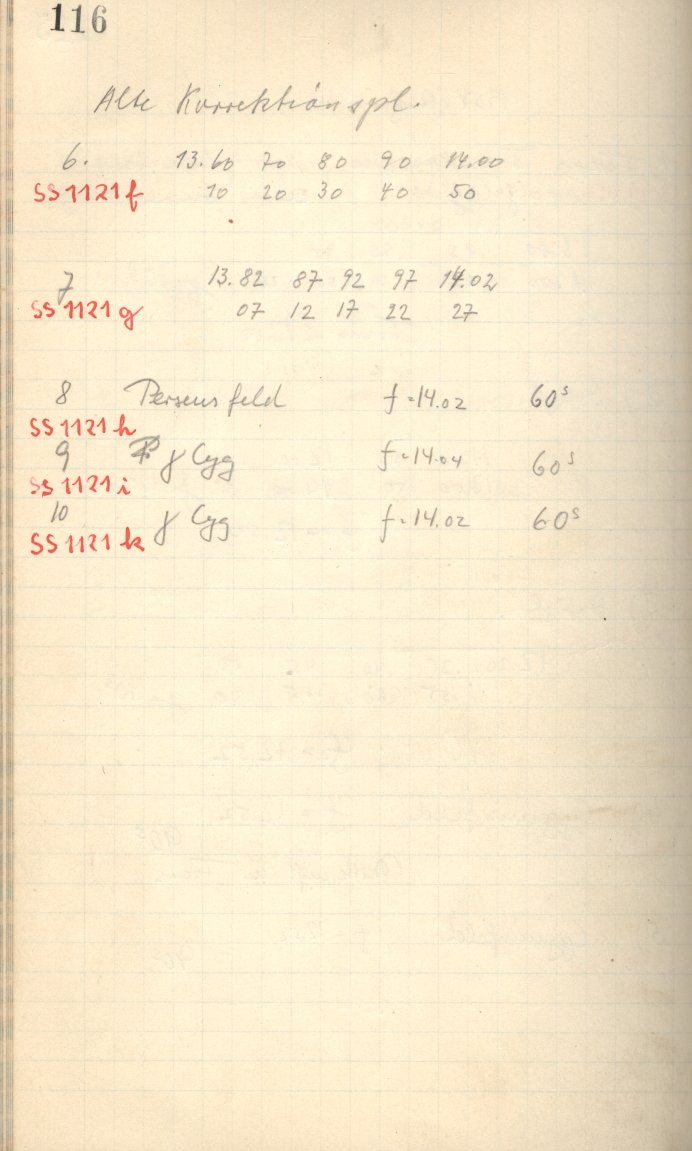 116
Alte Korrektionspl.
6. 13.60 70 80 90 14.00
SS1121f 10 20 30 40 50
7 13.82 87 92 97 14.02
SS1121g 07 12 17 22 27
8 Perseus feld f=14.02 60s
SS1121h
9 γ Cyg f=14.04 60s
SS1121i
10 γ Cyg f=14.02 60s
SS1121k